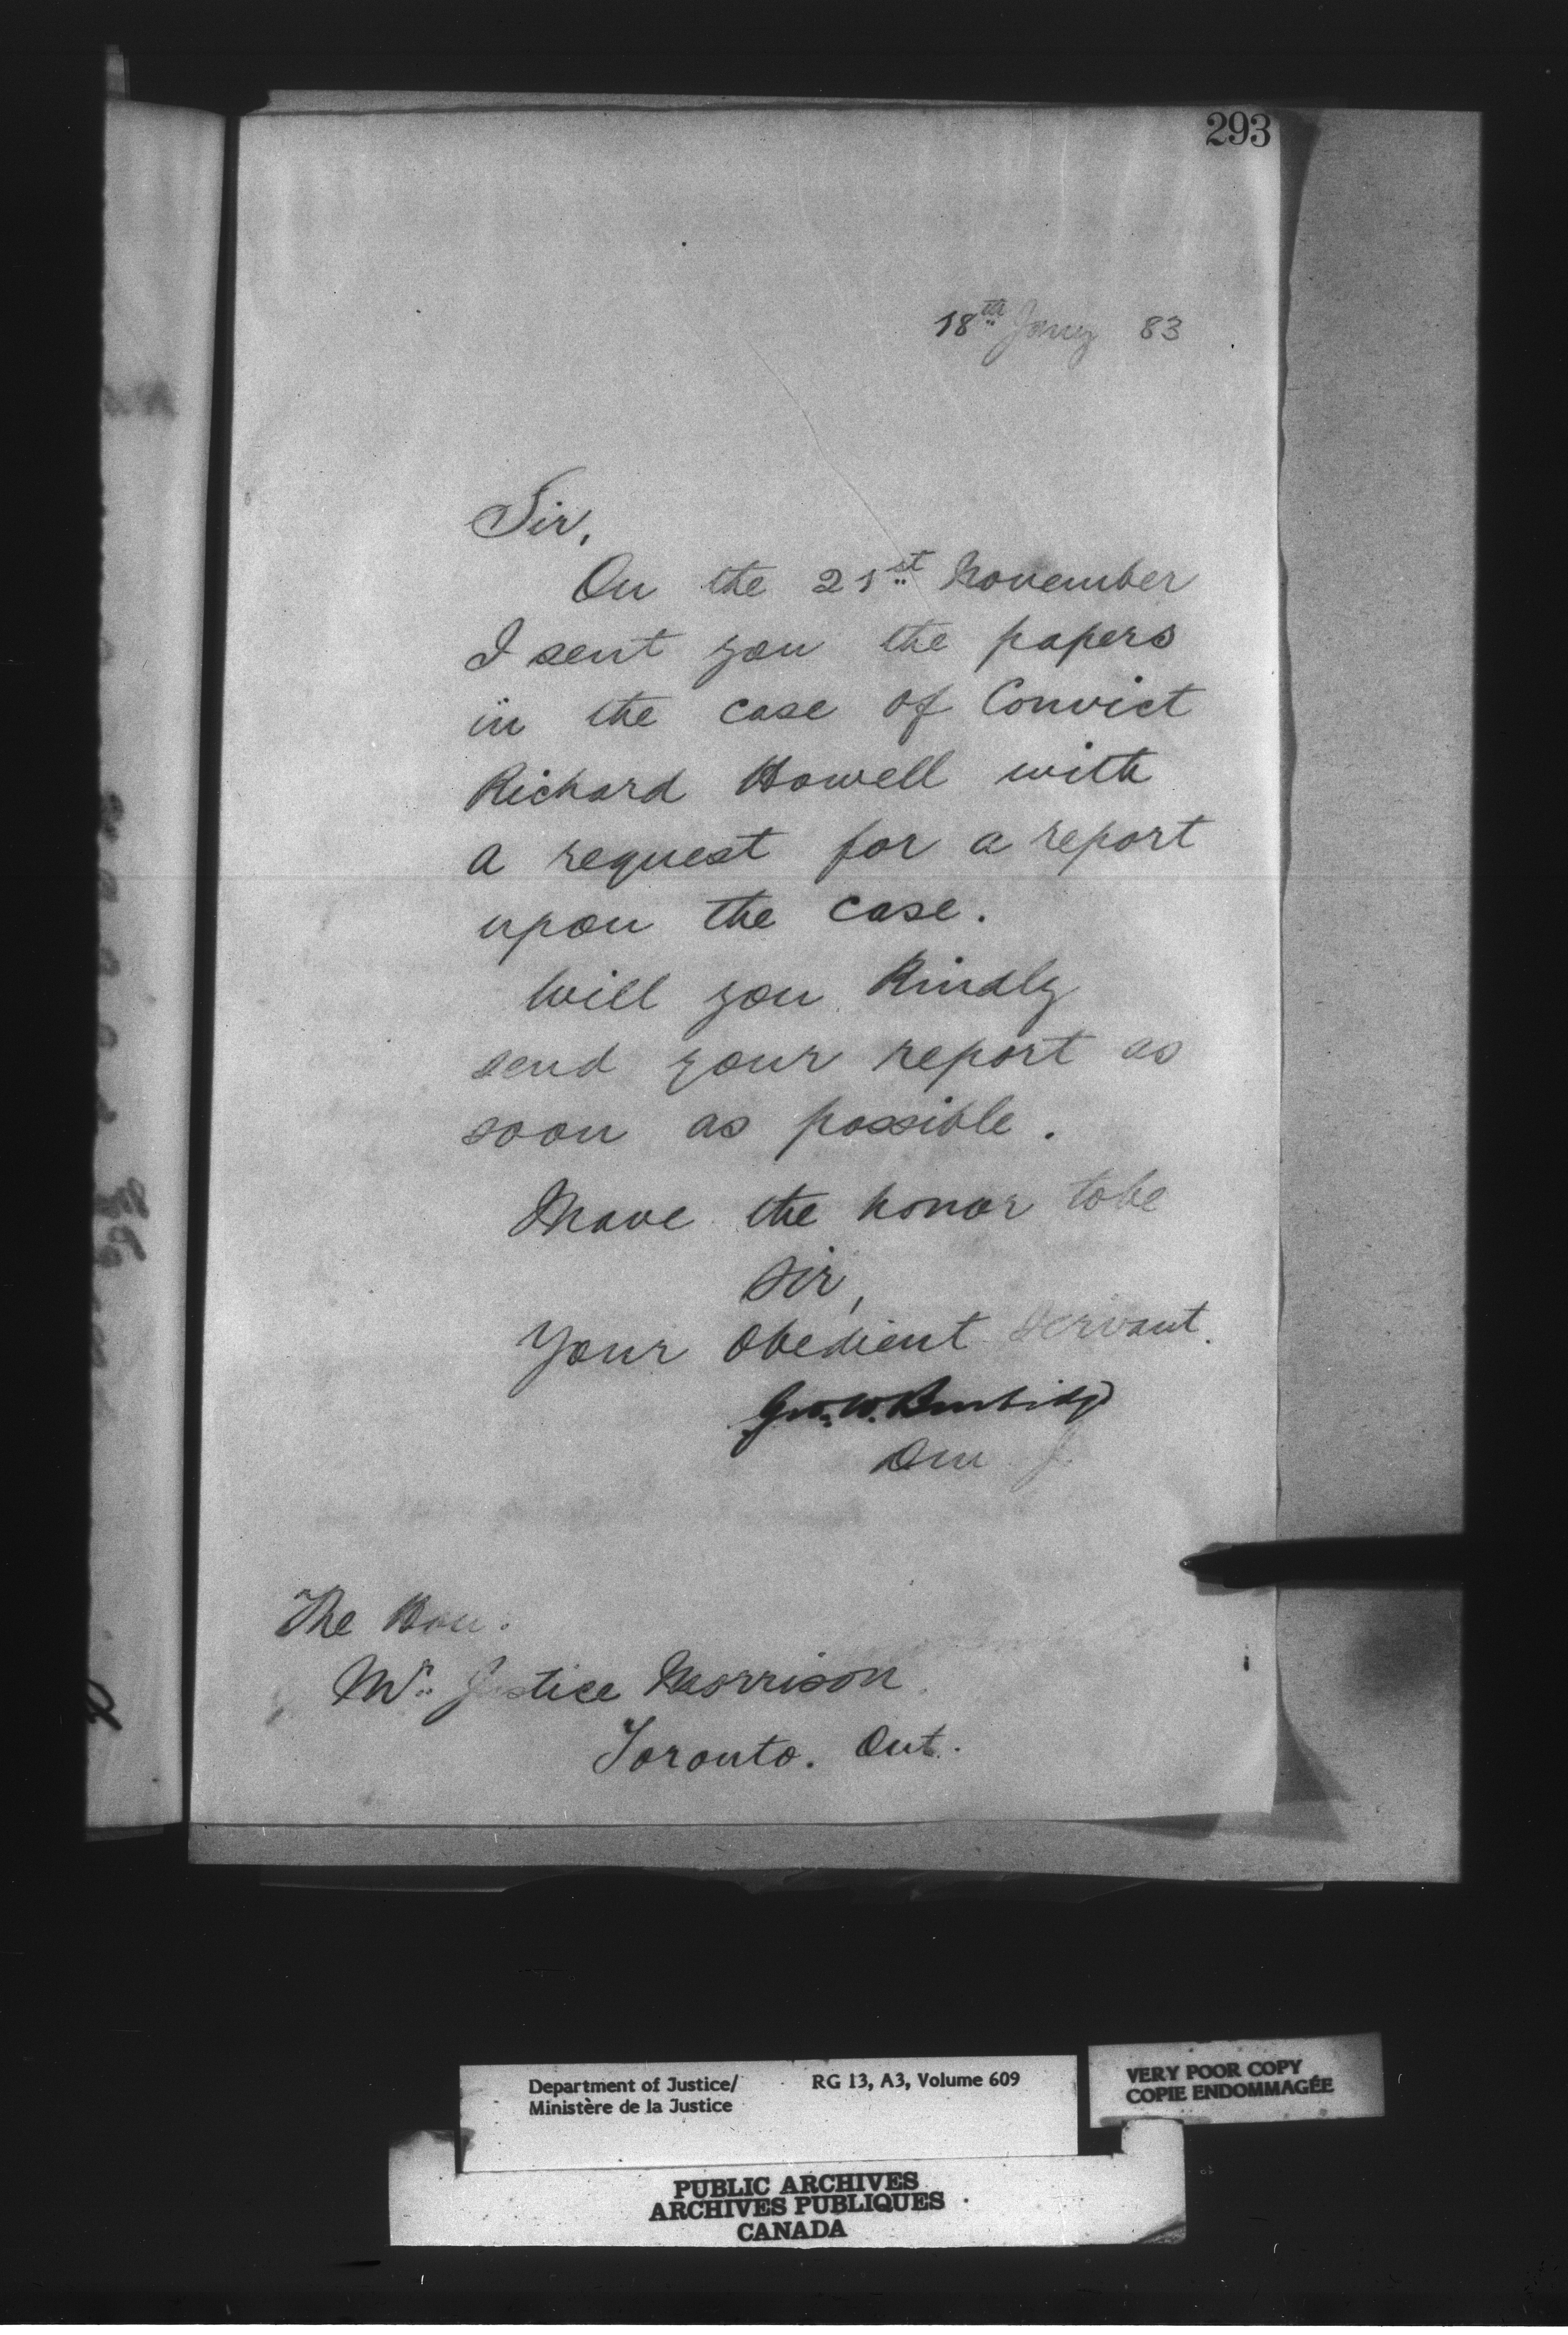 293
18th Jany 83
Sir,
On the 21st November
I sent you the papers
in the case of Convict
Richard Howell with
a request for a report
upon the case.
Will you Kindly
send your report as
soon as possible.
I have the honor to be
Sir,
Your Obedient Servant.
Geo. W. Burbidge
D M J.
The Hon.
Mr. Justice Morrison
Toronto. Ont.
Department of Justice/
Ministère de la Justice
RG 13, A3, Volume 609
VERY POOR COPY
COPIE ENDOMMAGÉE
PUBLIC ARCHIVES
ARCHIVES PUBLIQUES
CANADA